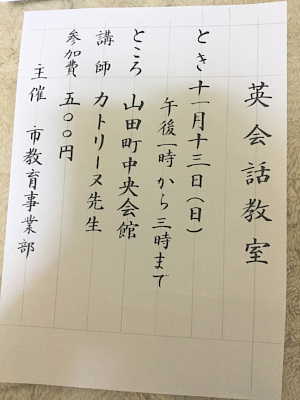 英会話教室
とき 十一月十三日（日）
午後一時から三時まで
ところ 山田町中央会館
講師 カトリーヌ先生
参加費 五〇〇円
主催 市教育事業部